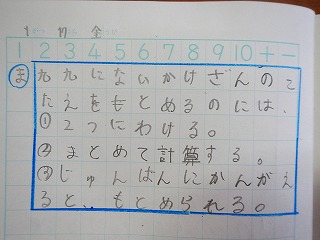 1 17 金
1 2 3 4 5 6 7 8 9 10 十 一
ま 九九にないかけざんのこ
たえをもとめるのには、
① 2つにわける。
② まとめて計算する。
③ じゅんばんにかんがえ
ると、もとめられる。